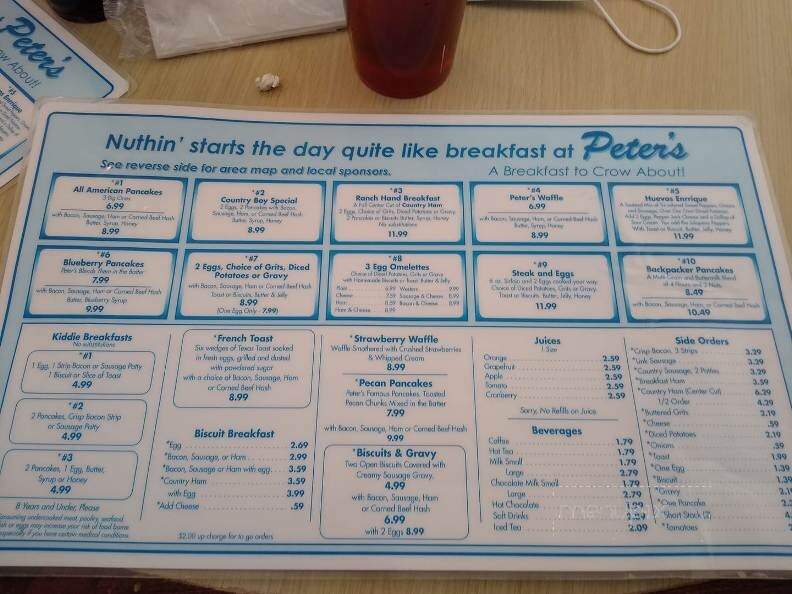 Peter's
Nuthin' starts the day quite like breakfast at Peter's
See reverse side for area map and local sponsors.
A Breakfast to Crow About!
*#1
All American Pancakes
3 Big Ones
6.99
with Bacon, Sausage, Ham or Corned Beef Hash
Butter, Syrup, Honey
8.99
*#2
Country Boy Special
2 Eggs, 2 Pancakes with Bacon,
Sausage, Ham, or Corned Beef Hash
Butter, Syrup, Honey
8.99
*#3
Ranch Hand Breakfast
A Full Center Cut of Country Ham
2 Eggs, Choice of Grits, Diced Potatoes or Gravy
2 Pancakes or Biscuits Butter, Syrup, Honey
No substitutions
11.99
*#4
Peter's Waffle
6.99
with Bacon, Sausage, Ham or Corned Beef Hash
Butter, Syrup, Honey
8.99
*#5
Huevos Enrrique
With Toast or Biscuit, Butter, Jelly, Honey
11.99
*#6
Blueberry Pancakes
Peter's Blends Them in the Batter
7.99
with Bacon, Sausage, Ham or Corned Beef Hash
Butter, Blueberry Syrup
9.99
*#7
2 Eggs, Choice of Grits, Diced
Potatoes or Gravy
with Bacon, Sausage, Ham or Corned Beef Hash
Toast or Biscuits, Butter & Jelly
8.99
(One Egg Only - 7.99)
*#8
3 Egg Omelettes
Choice of Diced Potatoes, Grits or Gravy
with Homemade Biscuits or Toast, Butter & Jelly
Plain 6.99 Western 9.99
Cheese 7.59 Sausage & Cheese 8.99
Ham 8.59 Bacon & Cheese 8.99
Ham & Cheese 8.99
*#9
Steak and Eggs
6 oz. Sirloin and 2 Eggs cooked your way
Choice of Diced Potatoes, Grits or Gravy
Toast or Biscuits, Butter, Jelly, Honey
11.99
*#10
Backpacker Pancakes
A Multi-Grain and Buttermilk Blend
of 4 Flours and 2 Nuts
8.49
with Bacon, Sausage, Ham, or Corned Beef Hash
10.49
Kiddie Breakfasts
No substitutions
*#1
1 Egg, 1 Strip Bacon or Sausage Patty
1 Biscuit or Slice of Toast
4.99
*#2
2 Pancakes, Crisp Bacon Strip
or Sausage Patty
4.99
*#3
2 Pancakes, 1 Egg, Butter,
Syrup or Honey
4.99
8 Years and Under, Please
undercooked meat, poultry, seafood,
or eggs may increase your risk of food borne
especially if you have certain medical conditions.
*French Toast
Six wedges of Texas Toast soaked
in fresh eggs, grilled and dusted
with powdered sugar
with a choice of Bacon, Sausage, Ham
or Corned Beef Hash
8.99
Biscuit Breakfast
*Egg 2.69
*Bacon, Sausage, or Ham 2.99
*Bacon, Sausage or Ham with egg 3.59
*Country Ham 3.59
with Egg 3.99
*Add Cheese .59
$2.00 up charge for to go orders
*Strawberry Waffle
Waffle Smothered with Crushed Strawberries
& Whipped Cream
8.99
*Pecan Pancakes
Peter's Famous Pancakes, Toasted
Pecan Chunks Mixed in the Batter
7.99
with Bacon, Sausage, Ham or Corned Beef Hash
9.99
*Biscuits & Gravy
Two Open Biscuits Covered with
Creamy Sausage Gravy.
4.99
with Bacon, Sausage, Ham
or Corned Beef Hash
6.99
with 2 Eggs 8.99
Juices
1 Size
Orange 2.59
Grapefruit 2.59
Apple 2.59
Tomato 2.59
Cranberry 2.59
Sorry, No Refills on Juice
Beverages
Coffee 1.79
Hot Tea 1.79
Milk Small 1.79
Large 2.79
Chocolate Milk Small 1.79
Large 2.79
Hot Chocolate 1.99
Soft Drinks
Iced Tea 2.09
Side Orders
*Crisp Bacon, 3 Strips 3.29
*Link Sausage 3.29
*Country Sausage, 2 Patties 3.29
*Breakfast Ham 3.59
*Country Ham (Center Cut) 6.29
1/2 Order 4.29
*Buttered Grits 2.19
*Cheese .59
*Diced Potatoes 2.19
*Onions .59
*Toast 1.99
*One Egg 1.39
*Biscuit 1.39
*Gravy
*One Pancake
*Short Stack (2)
*Tomatoes